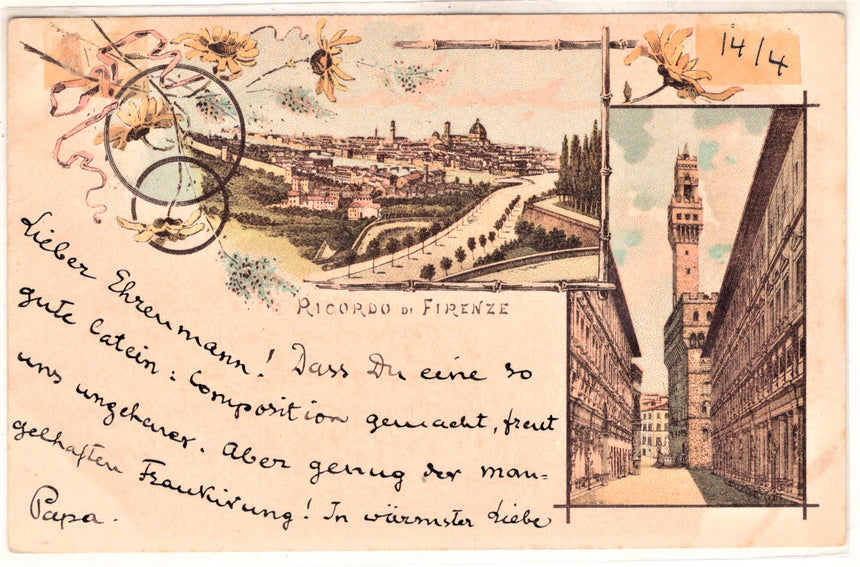 14/4
RICORDO DI FIRENZE
Lieber Ehrenmann! Dass Du eine so
gute latein: Composition gemacht, freut
uns ungeheuer. Aber genug der man=
gelhaften Frankirung! In wärmster Liebe
Papa.